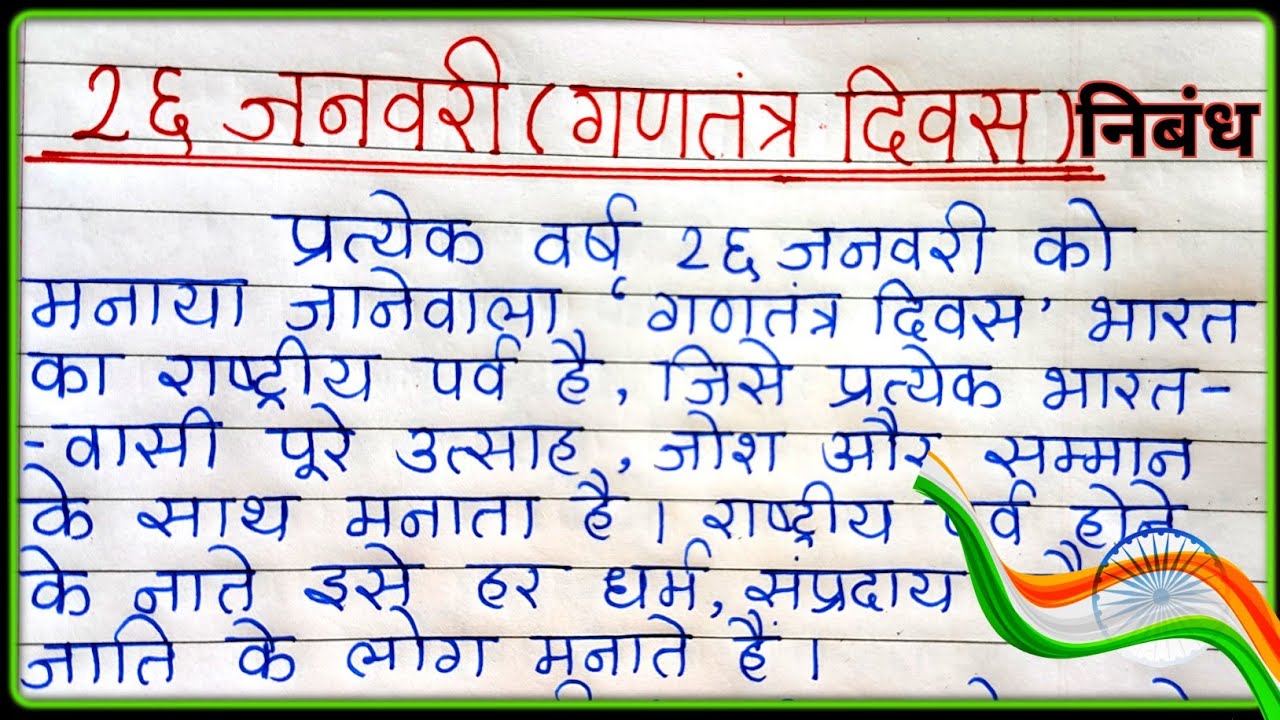 २६ जनवरी (गणतंत्र दिवस) निबंध
प्रत्येक वर्ष २६ जनवरी को
मनाया जानेवाला 'गणतंत्र दिवस' भारत
का राष्ट्रीय पर्व है, जिसे प्रत्येक भारत-
-वासी पूरे उत्साह, जोश और सम्मान
के साथ मनाता है। राष्ट्रीय पर्व होने
के नाते इसे हर धर्म, संप्रदाय
जाति के लोग मनाते हैं।